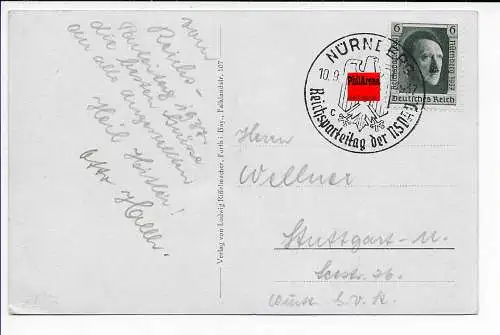 vom
Reichs-
Parteitag 1937.
die besten Grüsse
an alle
Heil Hitler!
Otto Haller.
Verlag von Ludwig Riffelmacher, Fürth i. Bay., Falklandstr. 107
NÜRNBERG
10.9.
PhilArena
c
Reichsparteitag der NSDAP
6 6
Reichsparteitag
Nürnberg 1937
Deutsches Reich
Herrn
Wellner
Stuttgart-N.
Seestr.